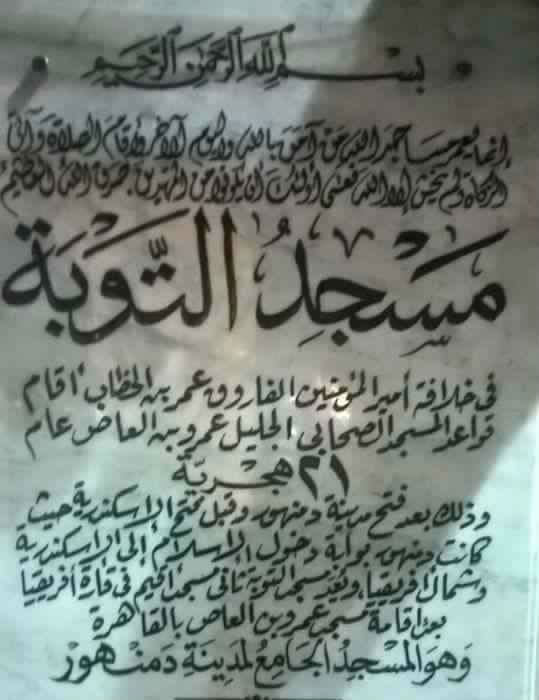 بسم الله الرحمن الرحيم
إنما يعمر مساجد الله من آمن بالله واليوم الآخر وأقام الصلاة وآتى
الزكاة ولم يخش إلا الله فعسى أولئك أن يكونوا من المهتدين. صدق الله العظيم
مَسْجِدُ التَّوبَة
في خلافة أمير المؤمنين الفاروق عمر بن الخطاب أقام
قواعد المسجد الصحابي الجليل عمرو بن العاص عام
٢١ هجريّة
وذلك بعد فتح مدينة دمنهور وقبل فتح الإسكندرية حيث
كانت دمنهور بوابة دخول الإسلام إلى الإسكندرية
وشمال أفريقيا، ويعد مسجد التوبة ثاني مسجد أقيم في قارة أفريقيا
بعد إقامة مسجد عمرو بن العاص بالقاهرة
وَهوَ المسْجدُ الجَامِعُ لمدِينَةِ دَمنْهُورْ